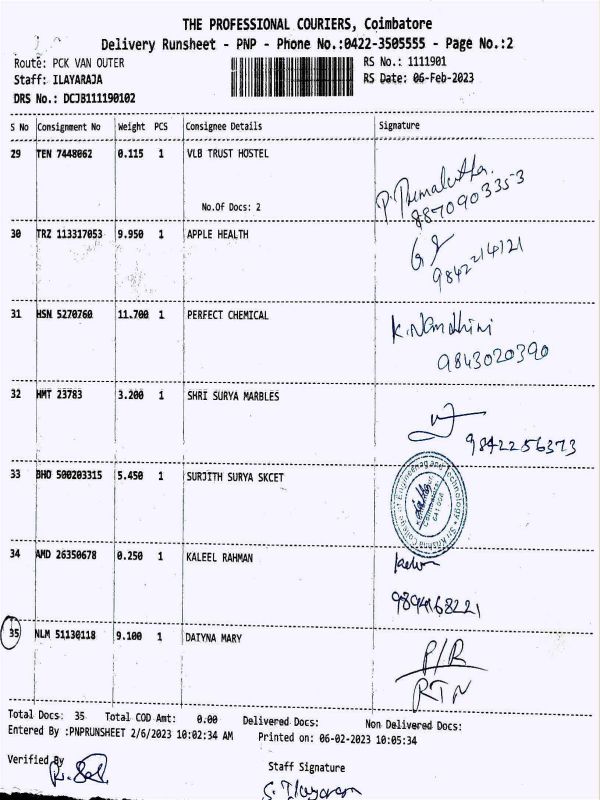 THE PROFESSIONAL COURIERS, Coimbatore
Delivery Runsheet - PNP - Phone No.:0422-3505555 - Page No.:2
Route: PCK VAN OUTER
RS No.: 1111901
Staff: ILAYARAJA
RS Date: 06-Feb-2023
DRS No.: DCJB111190102
S No Consignment No Weight PCS Consignee Details Signature
29 TEN 7448062 0.115 1 VLB TRUST HOSTEL
No.Of Docs: 2
8870903353
30 TRZ 113317053 9.950 1 APPLE HEALTH
9842214121
31 HSN 5270760 11.700 1 PERFECT CHEMICAL
K.Nandhini
9843020390
32 HMT 23783 3.200 1 SHRI SURYA MARBLES
9842256373
33 BHO 500203315 5.450 1 SURJITH SURYA SKCET
Sri Krishna College of Engineering and Technology
Coimbatore
641 008
34 AMD 26350678 0.250 1 KALEEL RAHMAN
9894168221
35 NLM 51130118 9.100 1 DAIYNA MARY
P/R
RTN
Total Docs: 35 Total COD Amt: 0.00 Delivered Docs: Non Delivered Docs:
Entered By :PNPRUNSHEET 2/6/2023 10:02:34 AM Printed on: 06-02-2023 10:05:34
Verified By
Staff Signature